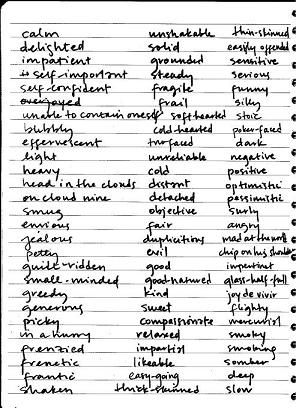 calm unshakable thin-skinned
delighted solid easily offended
impatient grounded sensitive
self-important steady serious
self-confident fragile funny
overjoyed frail silly
unable to contain oneself soft hearted stoic
bubbly cold hearted poker-faced
effervescent two faced dark
light unreliable negative
heavy cold positive
head in the clouds distant optimistic
on cloud nine detached pessimistic
smug objective surly
envious fair angry
jealous duplicitious mad at the world
petty evil chip on his shoulder
guilt-ridden good impertinent
small-minded good-natured glass-half-full
greedy kind joy de vivir
generous sweet flighty
picky compassionate mercurial
in a hurry relaxed smoky
frenzied impartial smoking
frenetic likeable somber
frantic easy-going deep
shaken thick-skinned slow